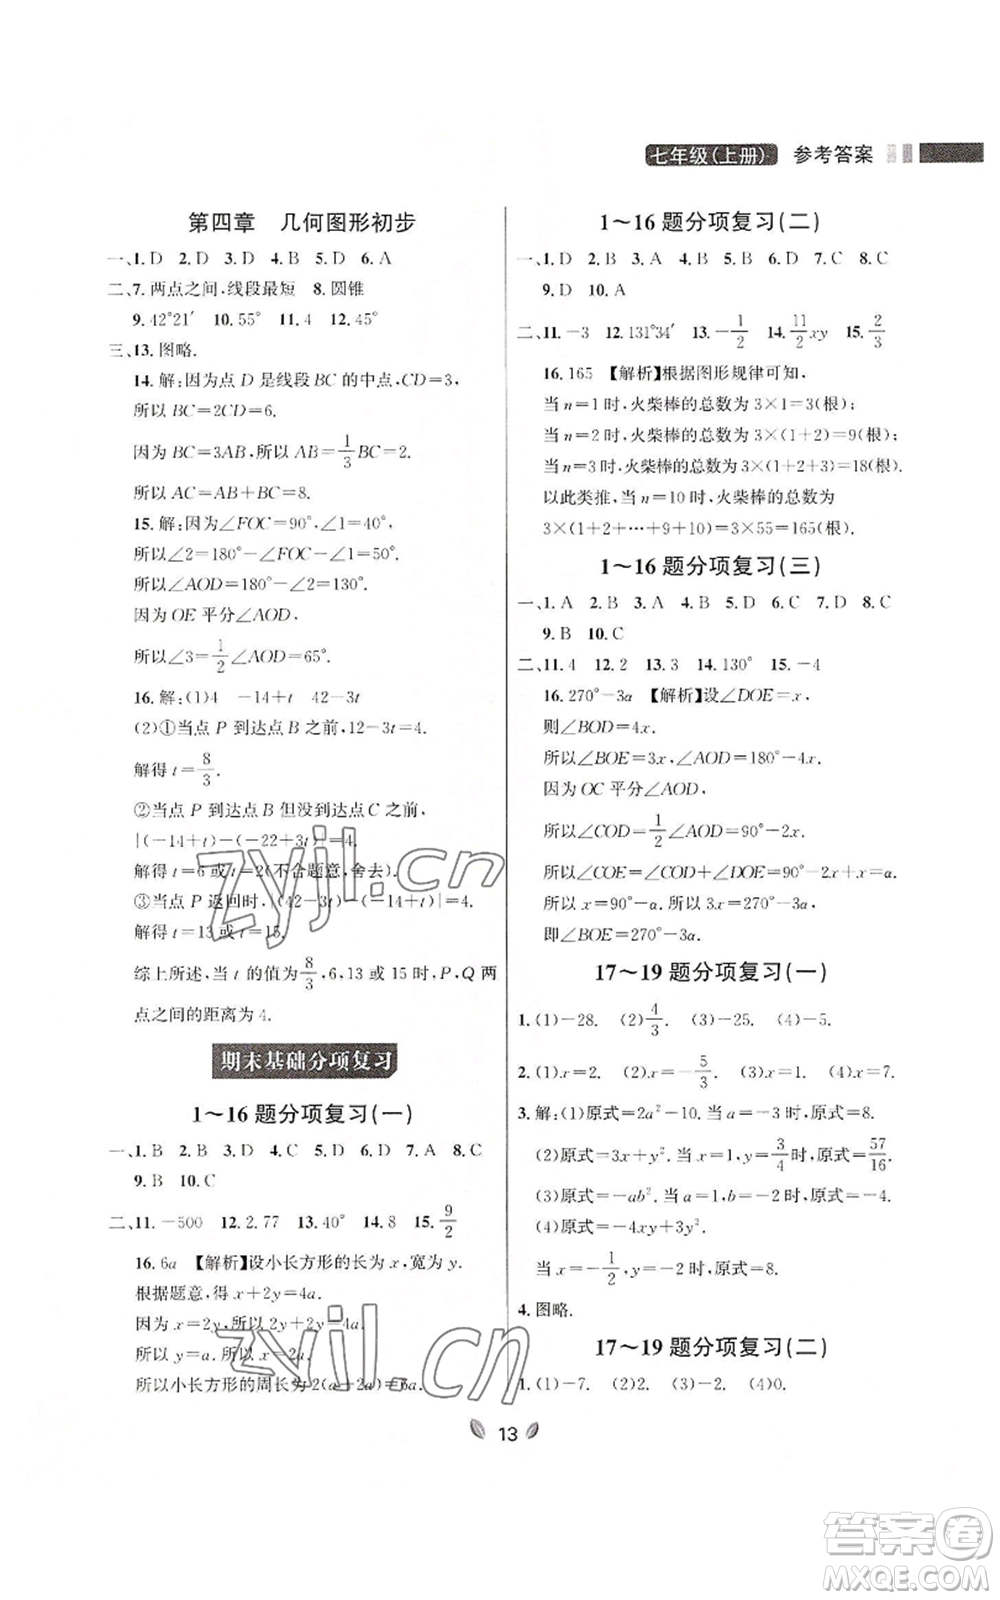 七年级(上册) 参考答案
第四章 几何图形初步
一、1. D 2. D 3. D 4. D 5. D 6. A
二、7. 两点之间,线段最短 8. 圆锥
9. 42°21′ 10. 55° 11. 4 12. 45°
三、13. 图略.
14. 解:因为点 D 是线段 BC 的中点,CD=3,
所以 BC=2CD=6.
因为 BC=3AB,所以 AB=1/3BC=2.
所以 AC=AB+BC=8.
15. 解:因为∠FOC=90°,∠1=40°,
所以∠2=180°-∠FOC-∠1=50°.
所以∠AOD=180°-∠2=130°.
因为 OE 平分∠AOD,
所以∠3=1/2∠AOD=65°.
16. 解:(1)4 -14+t 42-3t
(2)①当点 P 到达点 B 之前,12-3t=4.
解得 t=8/3.
②当点 P 到达点 B 但没到达点 C 之前,
|(-14+t)-(-22+3t)|=4.
解得 t=6 或 t=2(不合题意,舍去).
③当点 P 返回时,|(42-3t)-(-14+t)|=4.
解得 t=13 或 t=15.
综上所述,当 t 的值为8/3,6,13 或 15 时,P,Q 两
点之间的距离为 4.
期末基础分项复习
1～16 题分项复习(一)
一、1. B 2. B 3. D 4. C 5. D 6. D 7. A 8. C
9. B 10. C
二、11. -500 12. 2.77 13. 40° 14. 8 15. 9/2
16. 6a 【解析】设小长方形的长为 x,宽为 y.
根据题意,得 x+2y=4a.
因为 x=2y,所以 2y+2y=4a.
所以 y=a. 所以 x=2a.
所以小长方形的周长为 2(a+2a)=6a.
1～16 题分项复习(二)
一、1. D 2. B 3. A 4. B 5. B 6. D 7. C 8. C
9. D 10. A
二、11. -3 12. 131°34′ 13. -1/2 14. 11/2xy 15. 2/3
16. 165 【解析】根据图形规律可知,
当 n=1 时,火柴棒的总数为 3×1=3(根);
当 n=2 时,火柴棒的总数为 3×(1+2)=9(根);
当 n=3 时,火柴棒的总数为 3×(1+2+3)=18(根).
以此类推,当 n=10 时,火柴棒的总数为
3×(1+2+…+9+10)=3×55=165(根).
1～16 题分项复习(三)
一、1. A 2. B 3. A 4. B 5. D 6. C 7. D 8. C
9. B 10. C
二、11. 4 12. 2 13. 3 14. 130° 15. -4
16. 270°-3α 【解析】设∠DOE=x,
则∠BOD=4x.
所以∠BOE=3x,∠AOD=180°-4x.
因为 OC 平分∠AOD,
所以∠COD=1/2∠AOD=90°-2x.
所以∠COE=∠COD+∠DOE=90°-x=α.
所以 x=90°-α. 所以 3x=270°-3α.
即∠BOE=270°-3α.
17～19 题分项复习(一)
1. (1)-28. (2)4/3. (3)-25. (4)-5.
2. (1)x=2. (2)x=-5/3. (3)x=0. (4)x=1.
3. 解:(1)原式=2a²-10. 当 a=-3 时,原式=8.
(2)原式=3x+y². 当 x=1,y=3/4时,原式=57/16.
(3)原式=-ab². 当 a=1,b=-2 时,原式=-4.
(4)原式=-4xy+3y².
当 x=-1/2,y=-2 时,原式=8.
4. 图略.
17～19 题分项复习(二)
1. (1)-7. (2)2. (3)-2. (4)0.
13
zyjl.cn
zyjl.cn
答案圈
MXQE.COM